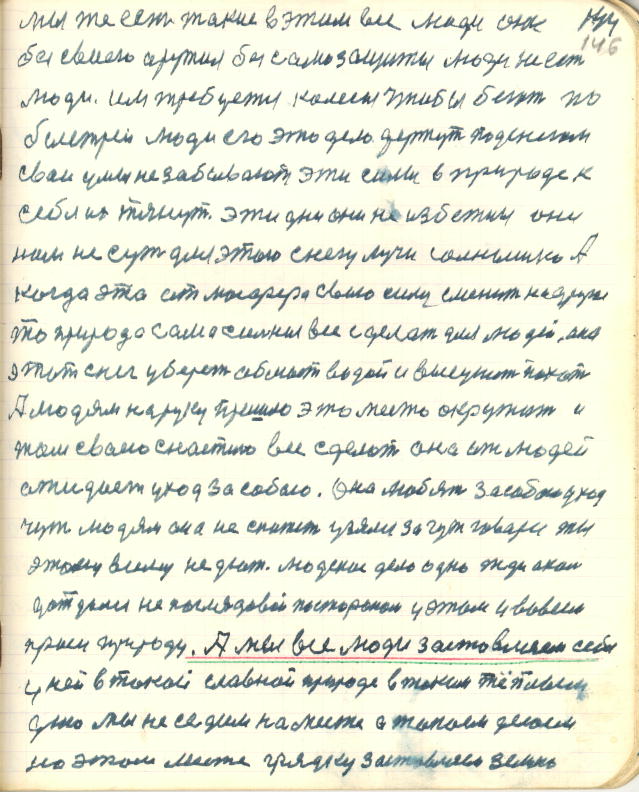 мы же есть такие в этом все люди они
146
без своего оружия без самозащиты люди не есть
люди. им требуется колесы чтобы бежат по
быстрей люди его это дело держут под
свои умы не забывают эти силы в природе к
себе их тянут. эти дни они не избежны они
нам не суж для этого снегу лучи солнышко А
когда эта атмосфера свою силу сменит на друже
то природа сама сильныя все сделат для людей, она
этот снег уберет обмыет водой и высушит пахат
А людям на руку прешло это место окружат и
там своею снастию все сделат она от людей
ожидает уход за собою. Она любят за собою уход
чут людям она не скажет взяли за чут говаря ты
этому всему не дют. людское дело одно жди
дут дыли не поглядовой посторонки у этом у во всем
проси природу. А мы все люди заставляем себя
у ней в такой славной природе в таким тёплым
дню мы не седим на месте а топаем делаем
на этом месте грядку заставляем землю